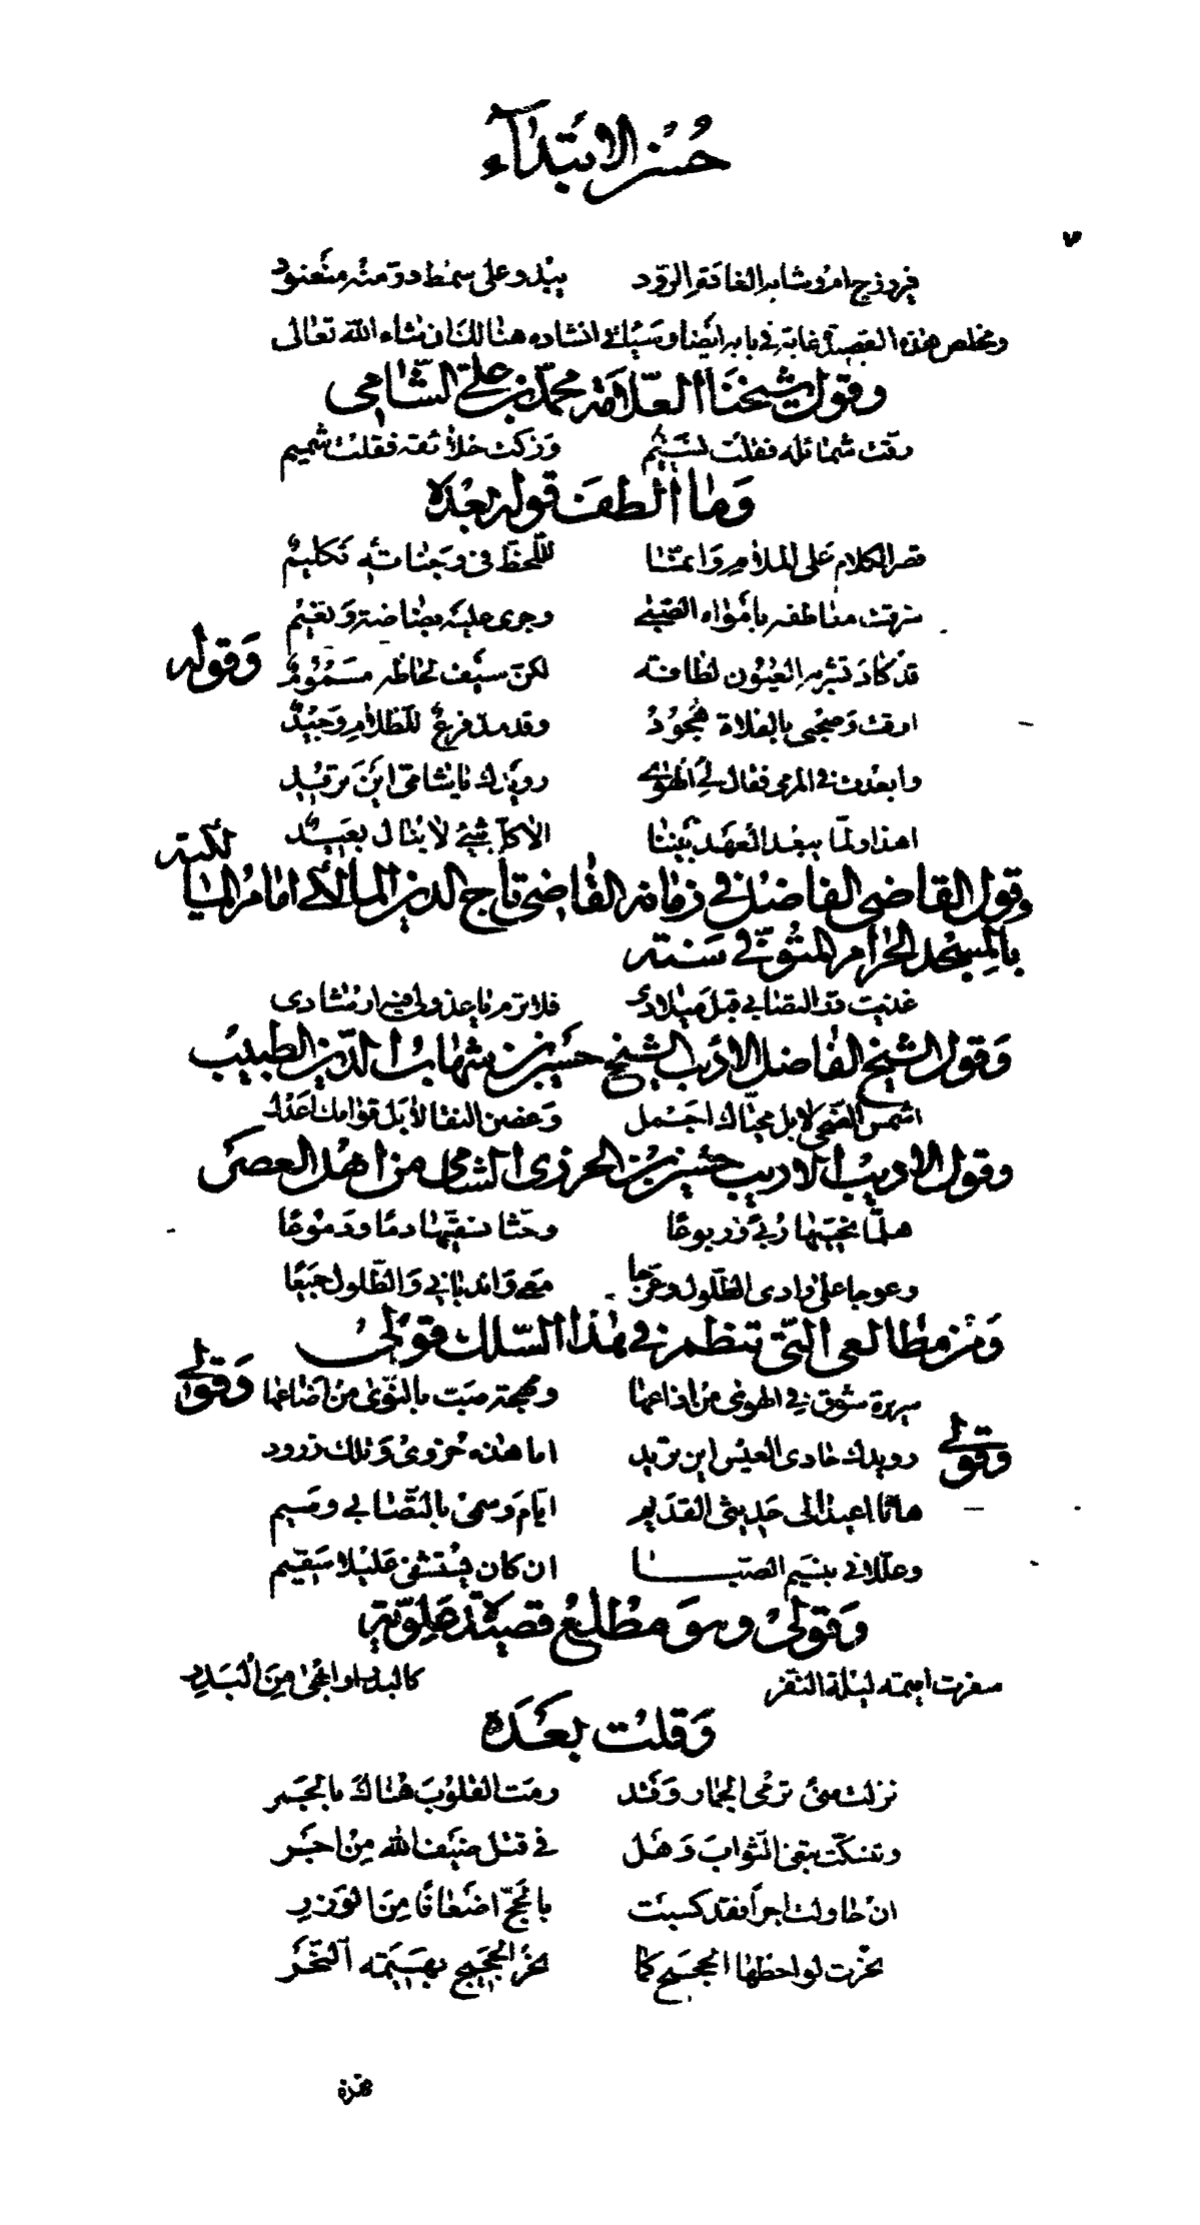 حُسْنُ الابْتِدَآء
٧
فيروزج ام وشام الغادة الرود يبدو على سمط در منه منضود
ومخلص هذه القصيدة غاية في بابه ايضا وسيأتي انشاده هنالك ان شاء الله تعالى
وقول شيخنا العلامة محمد بن علي الشامي
رقت شمائله فقلت نسيم وزكت خلائقه فقلت شميم
وما الطف قوله بعده
قصر الكلام على الملام وانما للحظ في وجناته تكليم
شرقت معاطفه بامواه الصبى وجرى عليه بضاضة ونعيم
قد كاد تشربه العيون لطافة لكن سيف لحاظه مسموم
وقوله
ارقت وصحبي بالفلاة هجود وقد مد فرع للظلام وجيد
وابعدت في المرمى فقال لي الهوى رويدك يا شامي اين تريد
اهذا ولما يبعد العهد بيننا الا كل شيء لا ينال بعيد
وقول القاضي الفاضل في زمانه القاضي تاج الدين المالكي امام المالكية
بالمسجد الحرام المتوفى في سنته
غذيت در التصابي قبل ميلادي فلا ترم يا عذولي فيه ارشادي
وقول الشيخ الفاضل الاديب الشيخ حسين بن شهاب الدين الطبيب
اشمس الضحى لا بل محياك اجمل وغصن النقا لا بل قوامك اعدل
وقول الاديب الاديب حسين بن الجزري الشامي من اهل العصر
هلما نحيها ربى وربوعا وحثا نسقيها دما ودموعا
وعوجا على وادي الطلول وعرجا معي واندباني والطلول جميعا
ومن مطالعي التي تنظم في هذا السلك قولي
سريرة شوق في الهوى من اذاعها ومهجة صب بالنوى من اضاعها
وقولي
رويدك حادي العيس اين تريد اما هذه حزوى وتلك زرود
وقولي
هاتا اعيدا لي حديثي القديم ايام وسمي بالتصابي وسيم
وعللاني بنسيم الصبا ان كان يستشفي عليلا سقيم
وقولي وهو مطلع قصيدة علوية
سفرت اميمة ليلة النفر كالبدر او ابهى من البدر
وقلت بعده
نزلت منى ترمي الجمار وقد رمت القلوب هناك بالجمر
وتنسكت تبغي الثواب وهل في قتل ضيف الله من اجر
ان حاولت اجرا فقد كسبت بالحج اضعافا من الوزر
نحرت لواحظها الحجيج كما نحر الحجيج بهيمة النحر